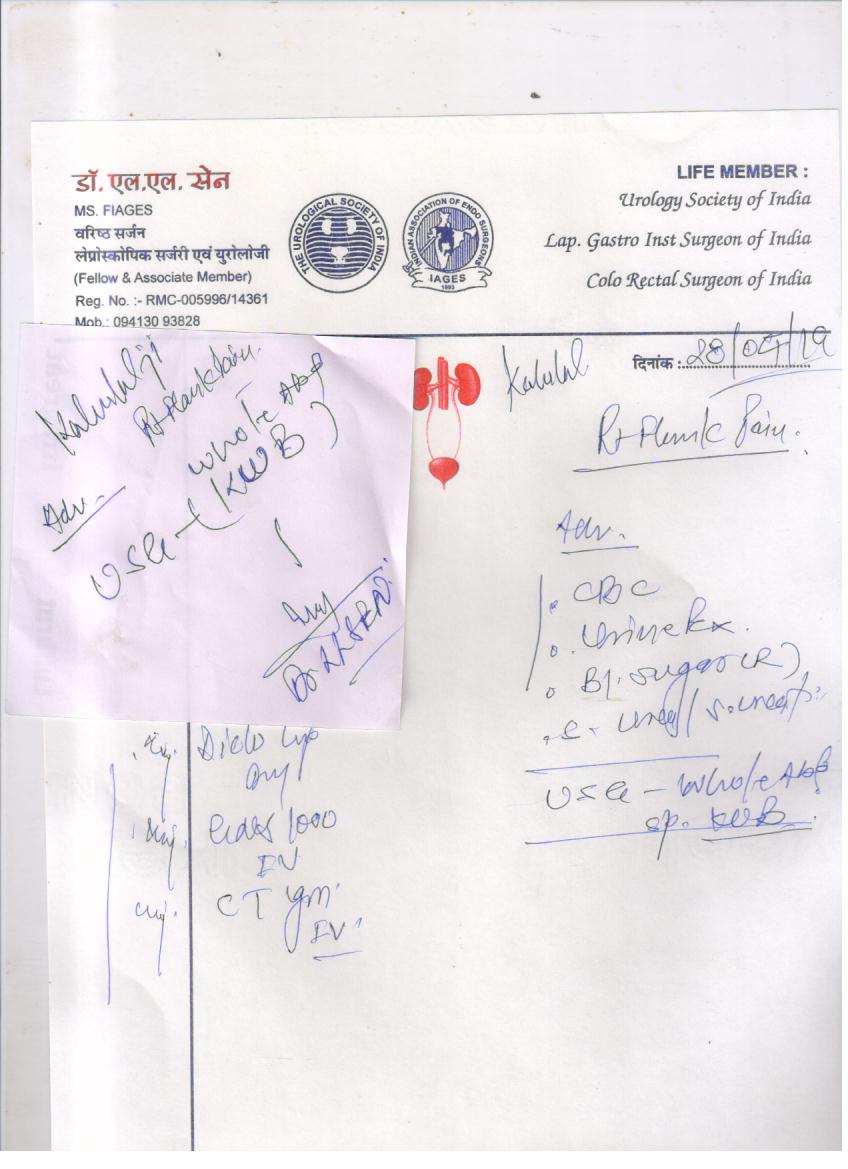 डॉ. एल.एल. सेन
MS. FIAGES
वरिष्ठ सर्जन
लेप्रोस्कोपिक सर्जरी एवं युरोलोजी
(Fellow & Associate Member)
Reg. No. :- RMC-005996/14361
Mob.: 094130 93828
THE UROLOGICAL SOCIETY OF INDIA
INDIAN ASSOCIATION OF ENDO SURGEONS
IAGES
1993
LIFE MEMBER :
Urology Society of India
Lap. Gastro Inst Surgeon of India
Colo Rectal Surgeon of India
दिनांक :
Kalulal
Rt Flank Pain.
Adv.
CBC
Urine Rx.
Bl. Sugar (R)
S. Urea/
USG - Whole Abd
sp. KUB
Kalulalji
Rt Flank Pain.
Adv.
whole Abd
USG - (KUB)
Inj.
Inj.
1000
IV
Inj.
CT 1gm
IV